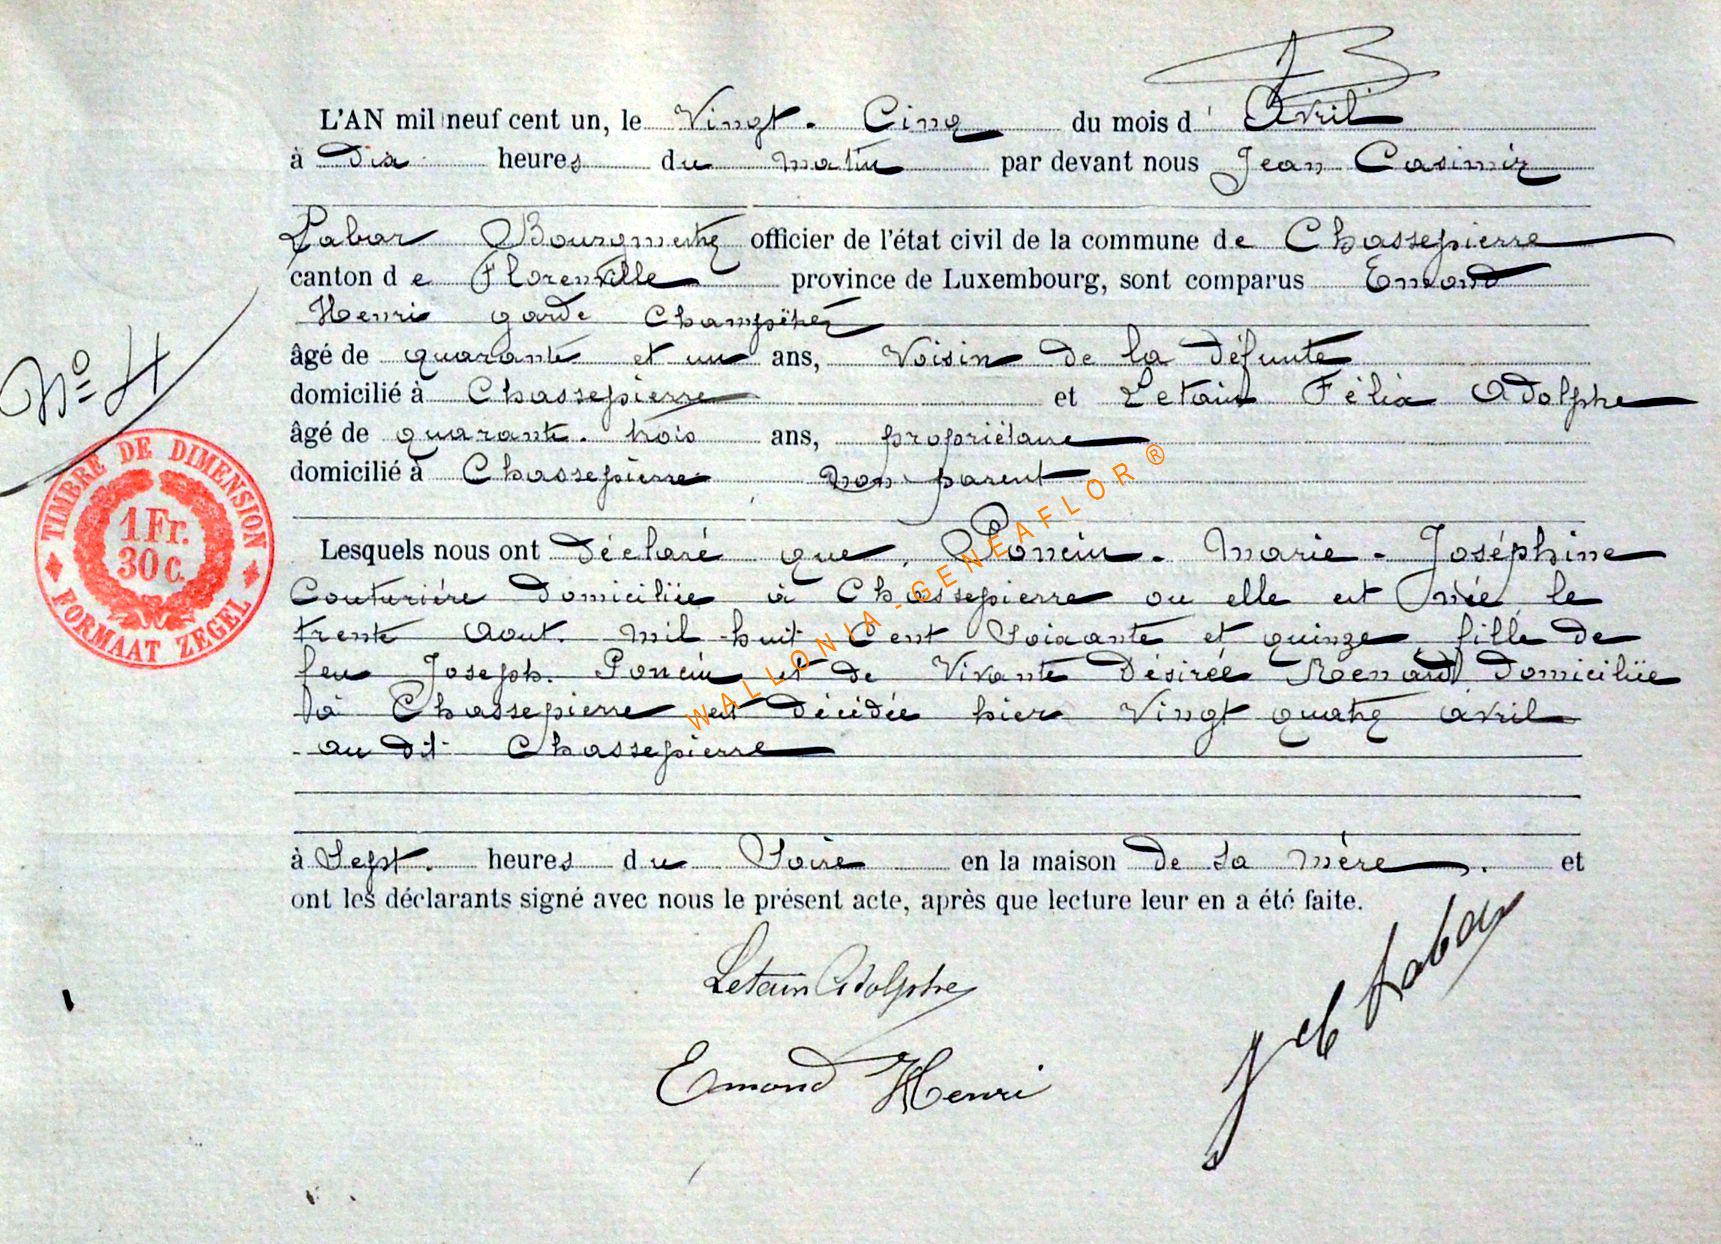 L'AN mil neuf cent un, le Vingt-Cinq du mois d'Avril
à dix heures du matin par devant nous Jean Casimir
Labar Bourgmestre officier de l'état civil de la commune de Chassepierre
canton de Florenville province de Luxembourg, sont comparus Emond
Henri garde Champêtre
âgé de quarante et un ans, Voisin de la défunte
domicilié à Chassepierre et Letain Félix Adolphe
âgé de quarante-trois ans, propriétaire
domicilié à Chassepierre non parent
Lesquels nous ont déclaré que Poncin-Marie-Joséphine
Couturière domiciliée à Chassepierre ou elle est née le
trente Aout mil-huit Cent Soixante et quinze fille de
feu Joseph Poncin et de Vivante Désirée Renard domiciliée
à Chassepierre est décédée hier Vingt quatre avril
au dit Chassepierre
à Sept heures du Soire en la maison de sa mère et
ont les déclarants signé avec nous le présent acte, après que lecture leur en a été faite.
Letain Adolphe
Emond Henri
J Cb Labar
N° 4
TIMBRE DE DIMENSION
1 Fr.
30 C.
FORMAAT ZEGEL
WALLONIA-GENEAFLOR ®